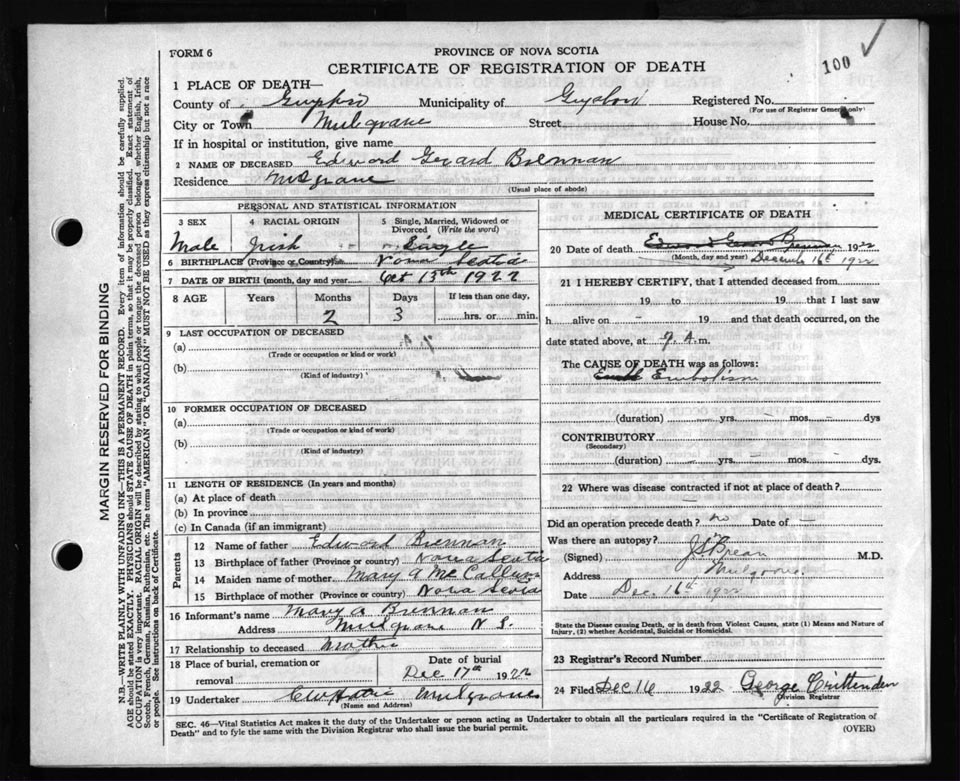 100 ✓
FORM 6
PROVINCE OF NOVA SCOTIA
CERTIFICATE OF REGISTRATION OF DEATH
1 PLACE OF DEATH—
County of Guysboro Municipality of Guysboro Registered No.
(For use of Registrar General only)
City or Town Mulgrave Street House No.
If in hospital or institution, give name
2 NAME OF DECEASED Edward Gerard Brennan
Residence Mulgrave
(Usual place of abode)
PERSONAL AND STATISTICAL INFORMATION
3 SEX
Male
4 RACIAL ORIGIN
Irish
5 Single, Married, Widowed or Divorced (Write the word)
Single
6 BIRTHPLACE (Province or Country) Nova Scotia
7 DATE OF BIRTH (month, day and year) Oct 13th 1922
8 AGE Years Months Days If less than one day,
2 3 hrs. or min.
9 LAST OCCUPATION OF DECEASED
(a)
(Trade or occupation or kind or work)
(b)
(Kind of industry)
10 FORMER OCCUPATION OF DECEASED
(a)
(Trade or occupation or kind of work)
(b)
(Kind of industry)
11 LENGTH OF RESIDENCE (In years and months)
(a) At place of death
(b) In province
(c) In Canada (if an immigrant)
Parents
12 Name of father Edward Brennan
13 Birthplace of father (Province or country) Nova Scotia
14 Maiden name of mother Mary A McCallum
15 Birthplace of mother (Province or country) Nova Scotia
16 Informant's name Mary A Brennan
Address Mulgrave N S.
17 Relationship to deceased Mother
18 Place of burial, cremation or removal
Date of burial
Dec 17th 1922
19 Undertaker Mulgrave
(Name and Address)
MEDICAL CERTIFICATE OF DEATH
20 Date of death Edward Gerard Brennan 1922
(Month, day and year) December 16th 1922
21 I HEREBY CERTIFY, that I attended deceased from
19 to 19 that I last saw
h alive on – 19 and that death occurred, on
date stated above, at 9. A. m.
The CAUSE OF DEATH was as follows:
Embolism
(duration) yrs. mos. dys
CONTRIBUTORY
(Secondary)
(duration) yrs. mos. dys.
22 Where was disease contracted if not at place of death?
Did an operation precede death? no Date of —
Was there an autopsy?
(Signed) M.D.
Address Mulgrave
Date Dec. 16th 1922
State the Disease causing Death, or in death from Violent Causes, state (1) Means and Nature of
Injury, (2) whether Accidental, Suicidal or Homicidal.
23 Registrar's Record Number
24 Filed Dec 16 1922 George Crittenden
Division Registrar
SEC. 46—Vital Statistics Act makes it the duty of the Undertaker or person acting as Undertaker to obtain all the particulars required in the "Certificate of Registration of
Death" and to fyle the same with the Division Registrar who shall issue the burial permit.
(OVER)
MARGIN RESERVED FOR BINDING
N.B.—WRITE PLAINLY WITH UNFADING INK—THIS IS A PERMANENT RECORD. Every item of information should be carefully supplied.
AGE should be stated EXACTLY. PHYSICIANS should STATE CAUSE OF DEATH in plain terms, so that it may be properly classified. Exact statement of
OCCUPATION is very important. RACIAL ORIGIN will be described by stating to what people or tongue the deceased person belonged whether English, Irish,
Scotch, French, German, Russian, Ruthenian, etc. The terms "AMERICAN" OR "CANADIAN" MUST NOT BE USED as they express citizenship but not a race
or people. See instructions on back of Certificate.